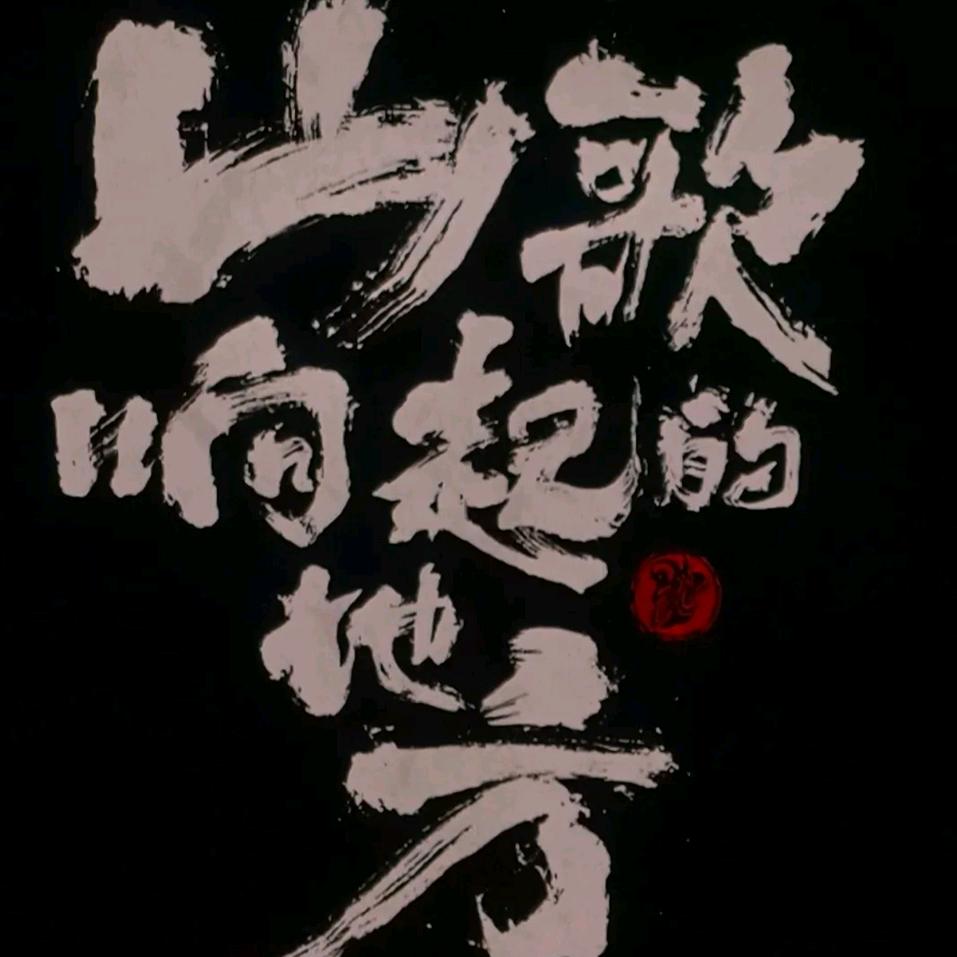 山歌
响起的
地方